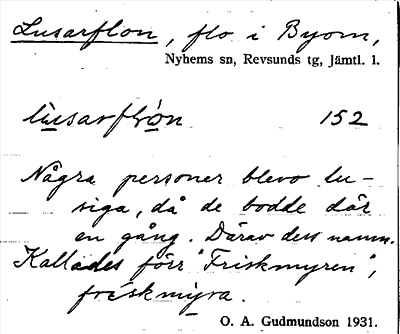 Lusarflon, flo i Byom,
Nyhems sn, Revsunds tg, Jämtl. l.
lusarflón 152
Några personer blevo lu-
siga, då de bodde där
en gång. Därav dess namn.
Kallades förr "Friskmyren",
friskmýra.
O. A. Gudmundson 1931.